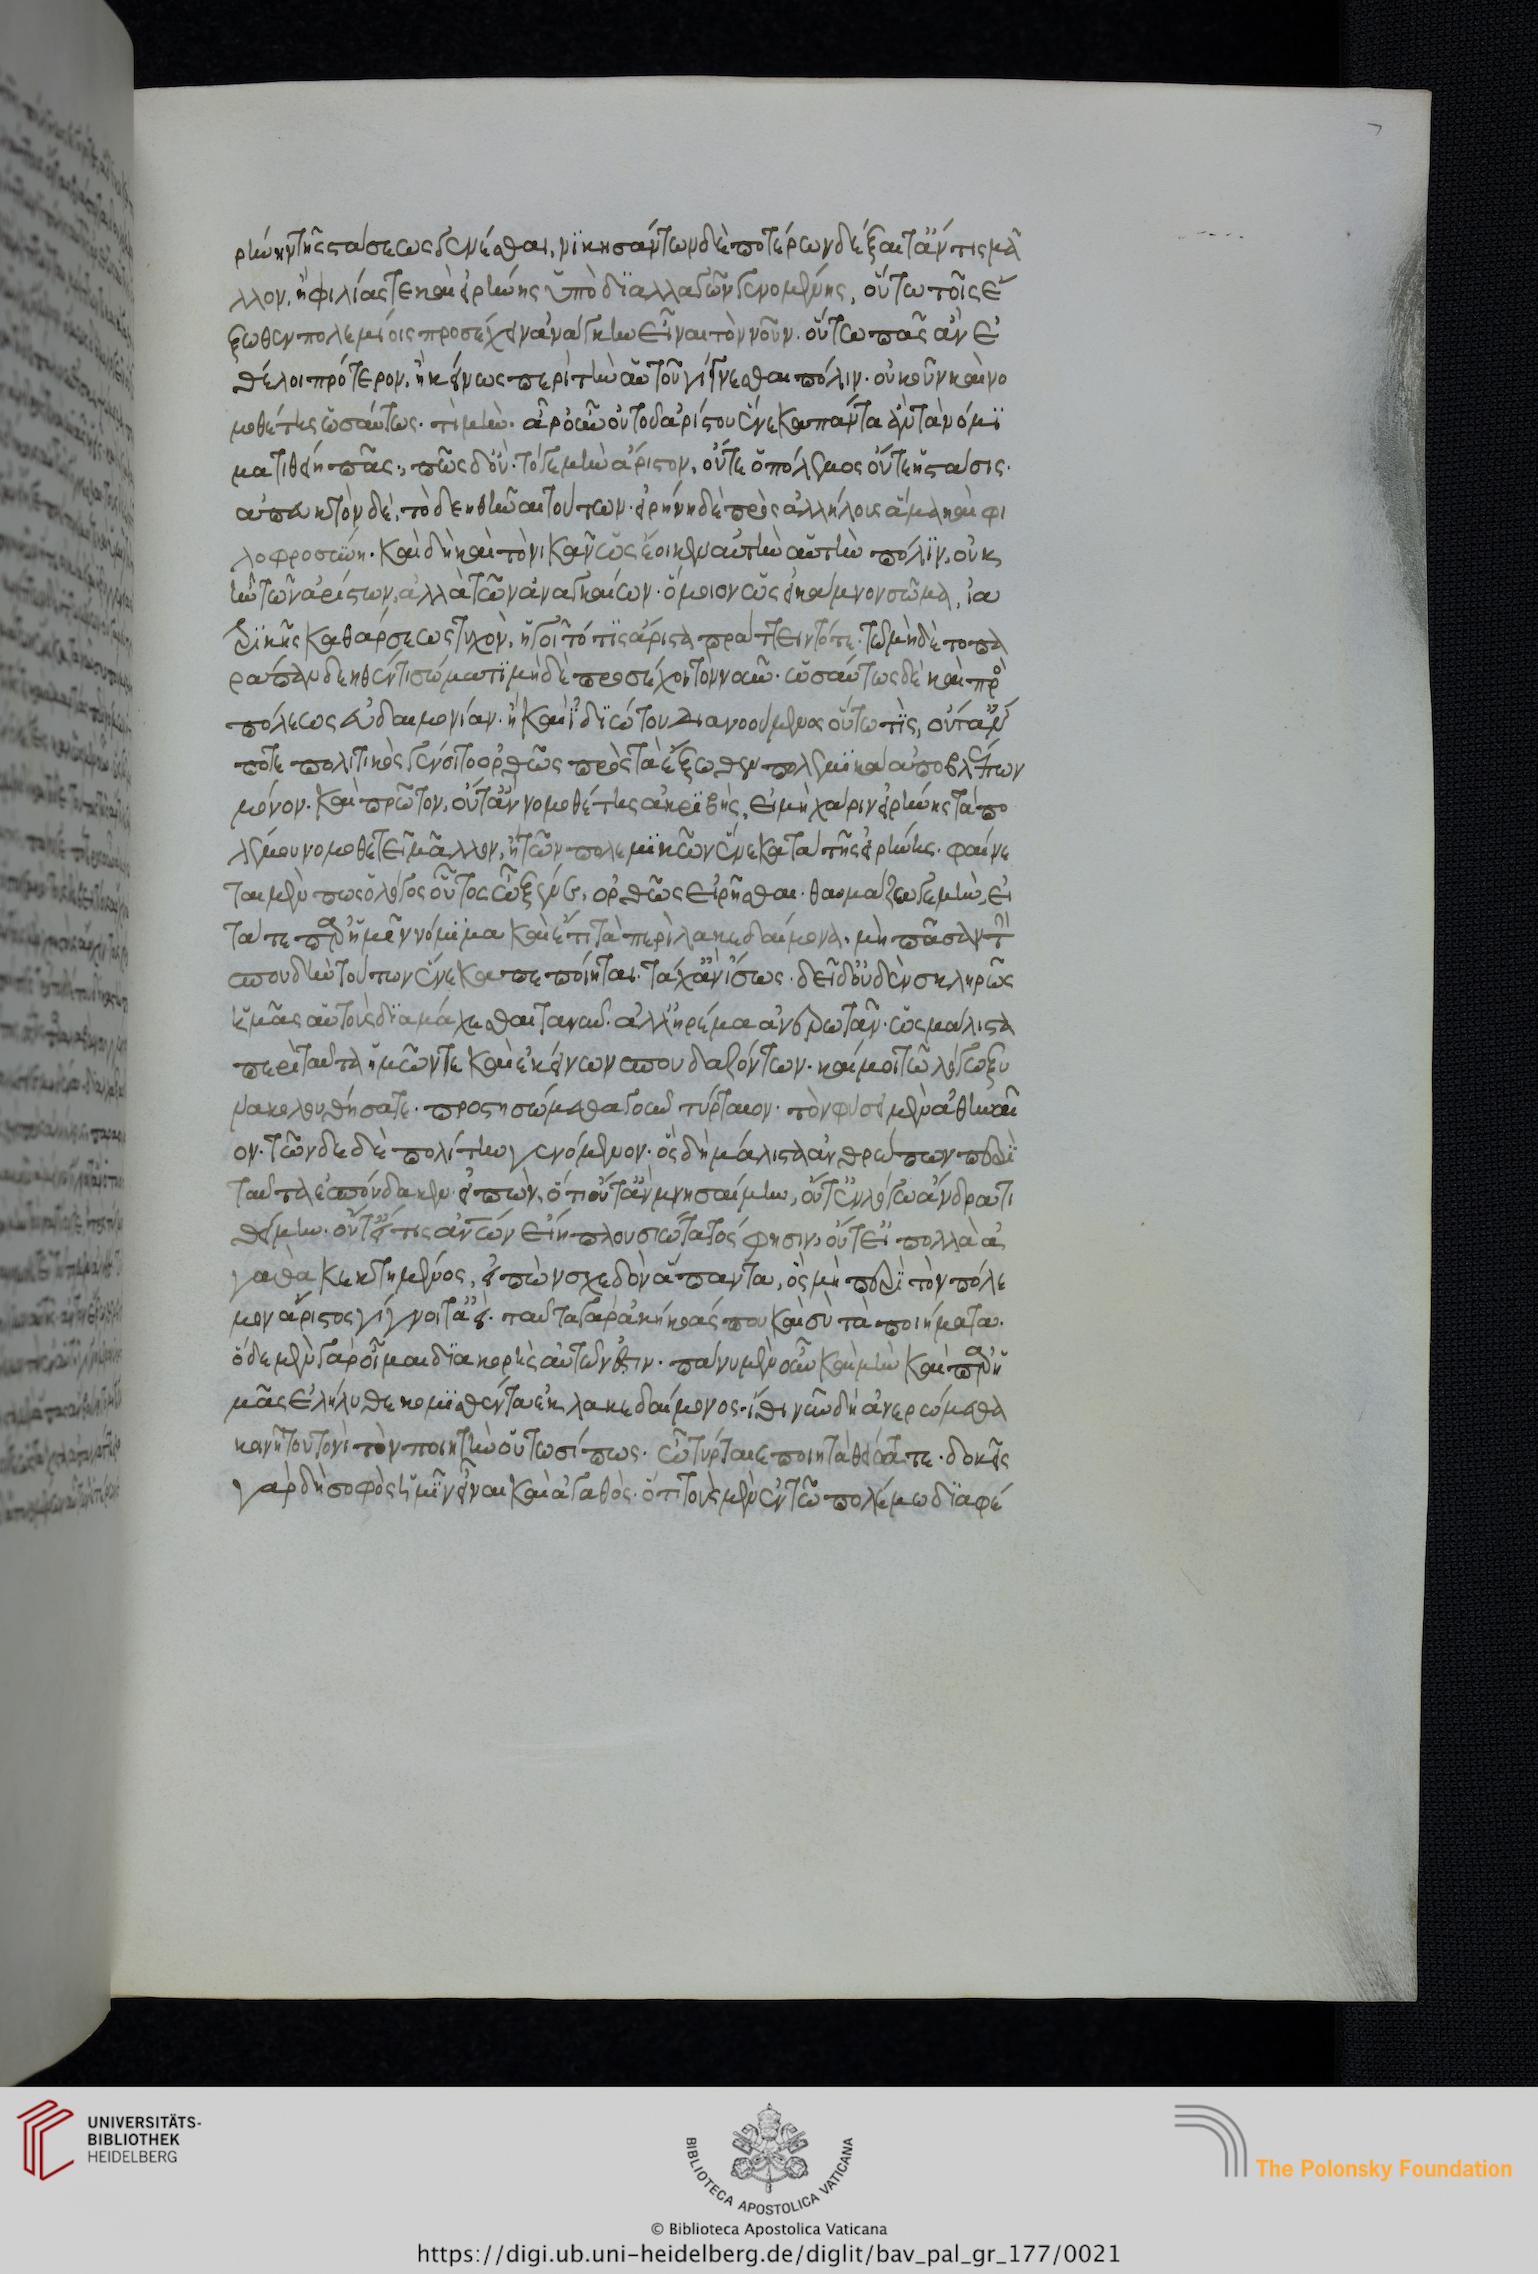 ρήνην τῆς στάσεως γενέσθαι, νϊκησάντων δὲ ποτέρων δέξαιτ' ἄν τις μᾶ
λλον, ἢ φιλίας τε καὶ εἰρήνης ὑπὸ δϊαλλαγῶν γενομένης, οὕτω τοῖς ἔ
ξωθεν πολεμίοις προσέχειν ἀνάγκην εἶναι τὸν νοῦν. οὕτω πᾶς ἂν ἐ
θέλοι πρότερον, ἢ κείνως περὶ τὴν αὑτοῦ γίγνεσθαι πόλιν. οὐκοῦν καὶ νο
μοθέτης ὡσαύτως. τί μήν. ἆρ' οὖν οὐ τοῦ ἀρίστου ἕνεκα πάντα ἂν τὰ νόμϊ
μα τιθείη πᾶς· πῶς δ' οὔ. τό γε μὴν ἄριστον, οὔτε ὁ πόλεμος οὔτε ἡ στάσις.
ἀπευκτὸν δέ, τὸ δεηθῆναι τούτων. εἰρήνη δὲ πρὸς ἀλλήλους ἅμα καὶ φι
λοφροσύνη. καὶ δὴ καὶ τὸ νικᾶν ὡς ἔοικεν αὐτὴν αὑτὴν πόλϊν, οὐκ
ἦν τῶν ἀρίστων, ἀλλὰ τῶν ἀναγκαίων. ὅμοιον ὡς εἰ κάμνον σῶμα, ἰα
τρϊκῆς καθάρσεως τυχὸν, ἡγοῖτό τϊς ἄριστα πράττειν τότε. τῷ μηδὲ τοπα
ράπαν δεηθέντι σώματϊ μηδὲ προσέχοι τὸν νοῦν. ὡσαύτως δὲ καὶ πρὸ
πόλεως εὐδαιμονίαν. ἢ καὶ ἰδϊώτου διανοούμενος οὕτω τὶς, οὔτ' ἄν
ποτε πολιτικὸς γένοιτο ὀρθῶς πρὸς τὰ ἔξωθεν πολεμϊκὰ ἀποβλέπων
μόνον. καὶ πρῶτον, οὔτ' ἂν νομοθέτης ἀκρϊβής, εἰ μὴ χάριν εἰρήνης τὰ πο
λέμου νομοθετεῖ μᾶλλον, ἢ τῶν πολεμϊκῶν ἕνεκα τὰ τῆς εἰρήνης. φαίνε
ται μέν πως ὁ λόγος οὗτος ὦ ξένε, ὀρθῶς εἰρῆσθαι. θαυμάζω γε μὴν, εἰ
τά τε παρ' ἡμῖν νόμϊμα καὶ ἔτι τὰ περὶ λακεδαίμονα, μὴ πᾶσαν τὴν
σπουδὴν τούτων ἕνεκα πεποίηται. τάχ' ἂν ἴσως. δεῖ δ' οὐδὲν σκληρῶς
ἡμᾶς αὐτοῖς δϊαμάχεσθαι τανῦν. ἀλλ' ἠρέμα ἀνερωτᾶν. ὡς μάλιστα
περὶ ταῦτα ἡμῶν τε καὶ ἐκείνων σπουδαζόντων. καί μοι τῷ λόγῳ ξυ
νακολουθήσατε. προστησώμεθα γοῦν τύρταιον. τὸν φύσει μὲν ἀθηναῖ
ον. τῶνδε δὲ πολίτην γενόμενον. ὃς δὴ μάλιστα ἀνθρώπων περὶ
ταῦτα ἐσπούδακεν εἰπών, ὅτι οὔτ' ἂν μνησαίμην, οὔτ' ἐν λόγῳ ἄνδρα τι
θείμην. οὔτ' εἴ τις ἀν̅τῶν εἴη πλουσιώτατός φησιν, οὔτ' εἰ πολλὰ ἀ
γαθὰ κεκτημένος, εἰπὼν σχεδὸν ἅπαντα, ὃς μὴ περὶ τὸν πόλε
μον ἄριστος γίγνοιτ' ἀεί. ταῦτα γὰρ ἀκήκοάς που καὶ σὺ τὰ ποιήματα.
ὅδε μὲν γὰρ οἶμαι δϊακορὴς αὐτῶν ἐστιν. πάνυ μὲν οὖν καὶ μὴν καὶ παρ' ἡ
μᾶς ἐλήλυθε κομϊσθέντα ἐκ λακεδαίμονος. ἴθι νῦν δὴ ἀνερώμεθα
κοινῇ τουτονὶ τὸν ποιητὴν οὑτωσί πως. ὦ τύρταιε ποιητὰ θειότατε. δοκεῖς
γὰρ δὴ σοφὸς ἡμῖν εἶναι καὶ ἀγαθὸς. ὅτι τοὺς μὲν ἐν τῷ πολέμῳ δϊαφέ
UNIVERSITÄTS-
BIBLIOTHEK
HEIDELBERG
BIBLIOTECA APOSTOLICA VATICANA
The Polonsky Foundation
© Biblioteca Apostolica Vaticana
https://digi.ub.uni-heidelberg.de/diglit/bav_pal_gr_177/0021